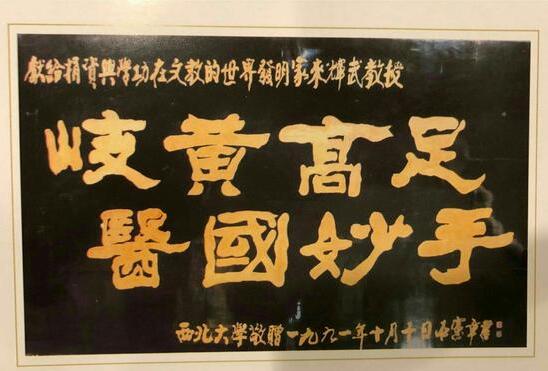 獻給捐資興學功在文教的世界發明家來輝武教授
岐黄高足
醫國妙手
西北大學敬贈一九九一年十月十日石憲章書